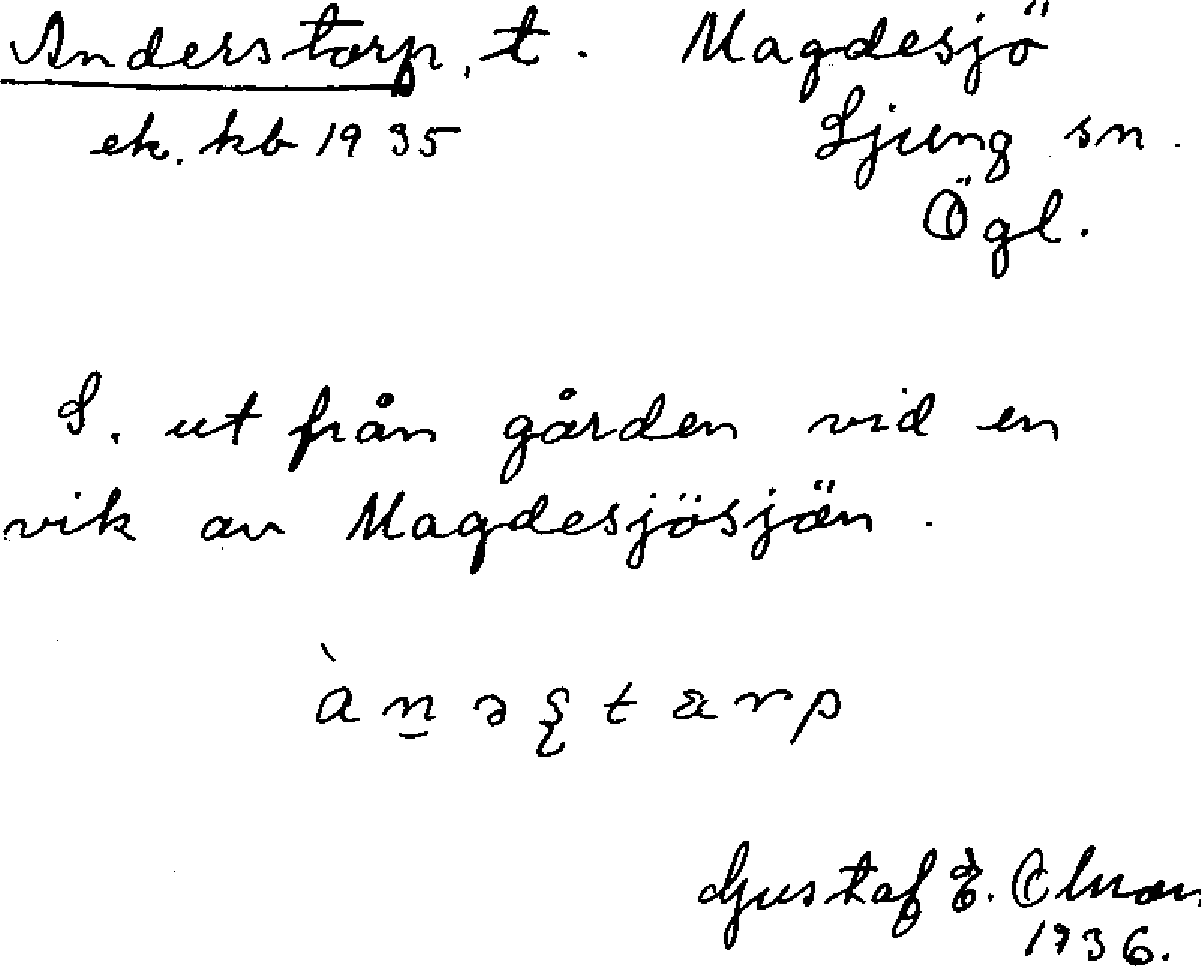 Anderstorp, t. Magdesjö
ek. kb 1935 Ljung sn.
Ögl.
S. ut från gården vid en
vik av Magdesjösjön.
Gustaf E.
1936.